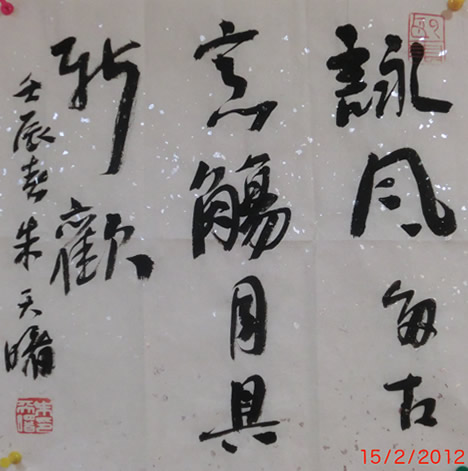 詠風古
意觴月具
新歡
壬辰春朱天曙
15/2/2012